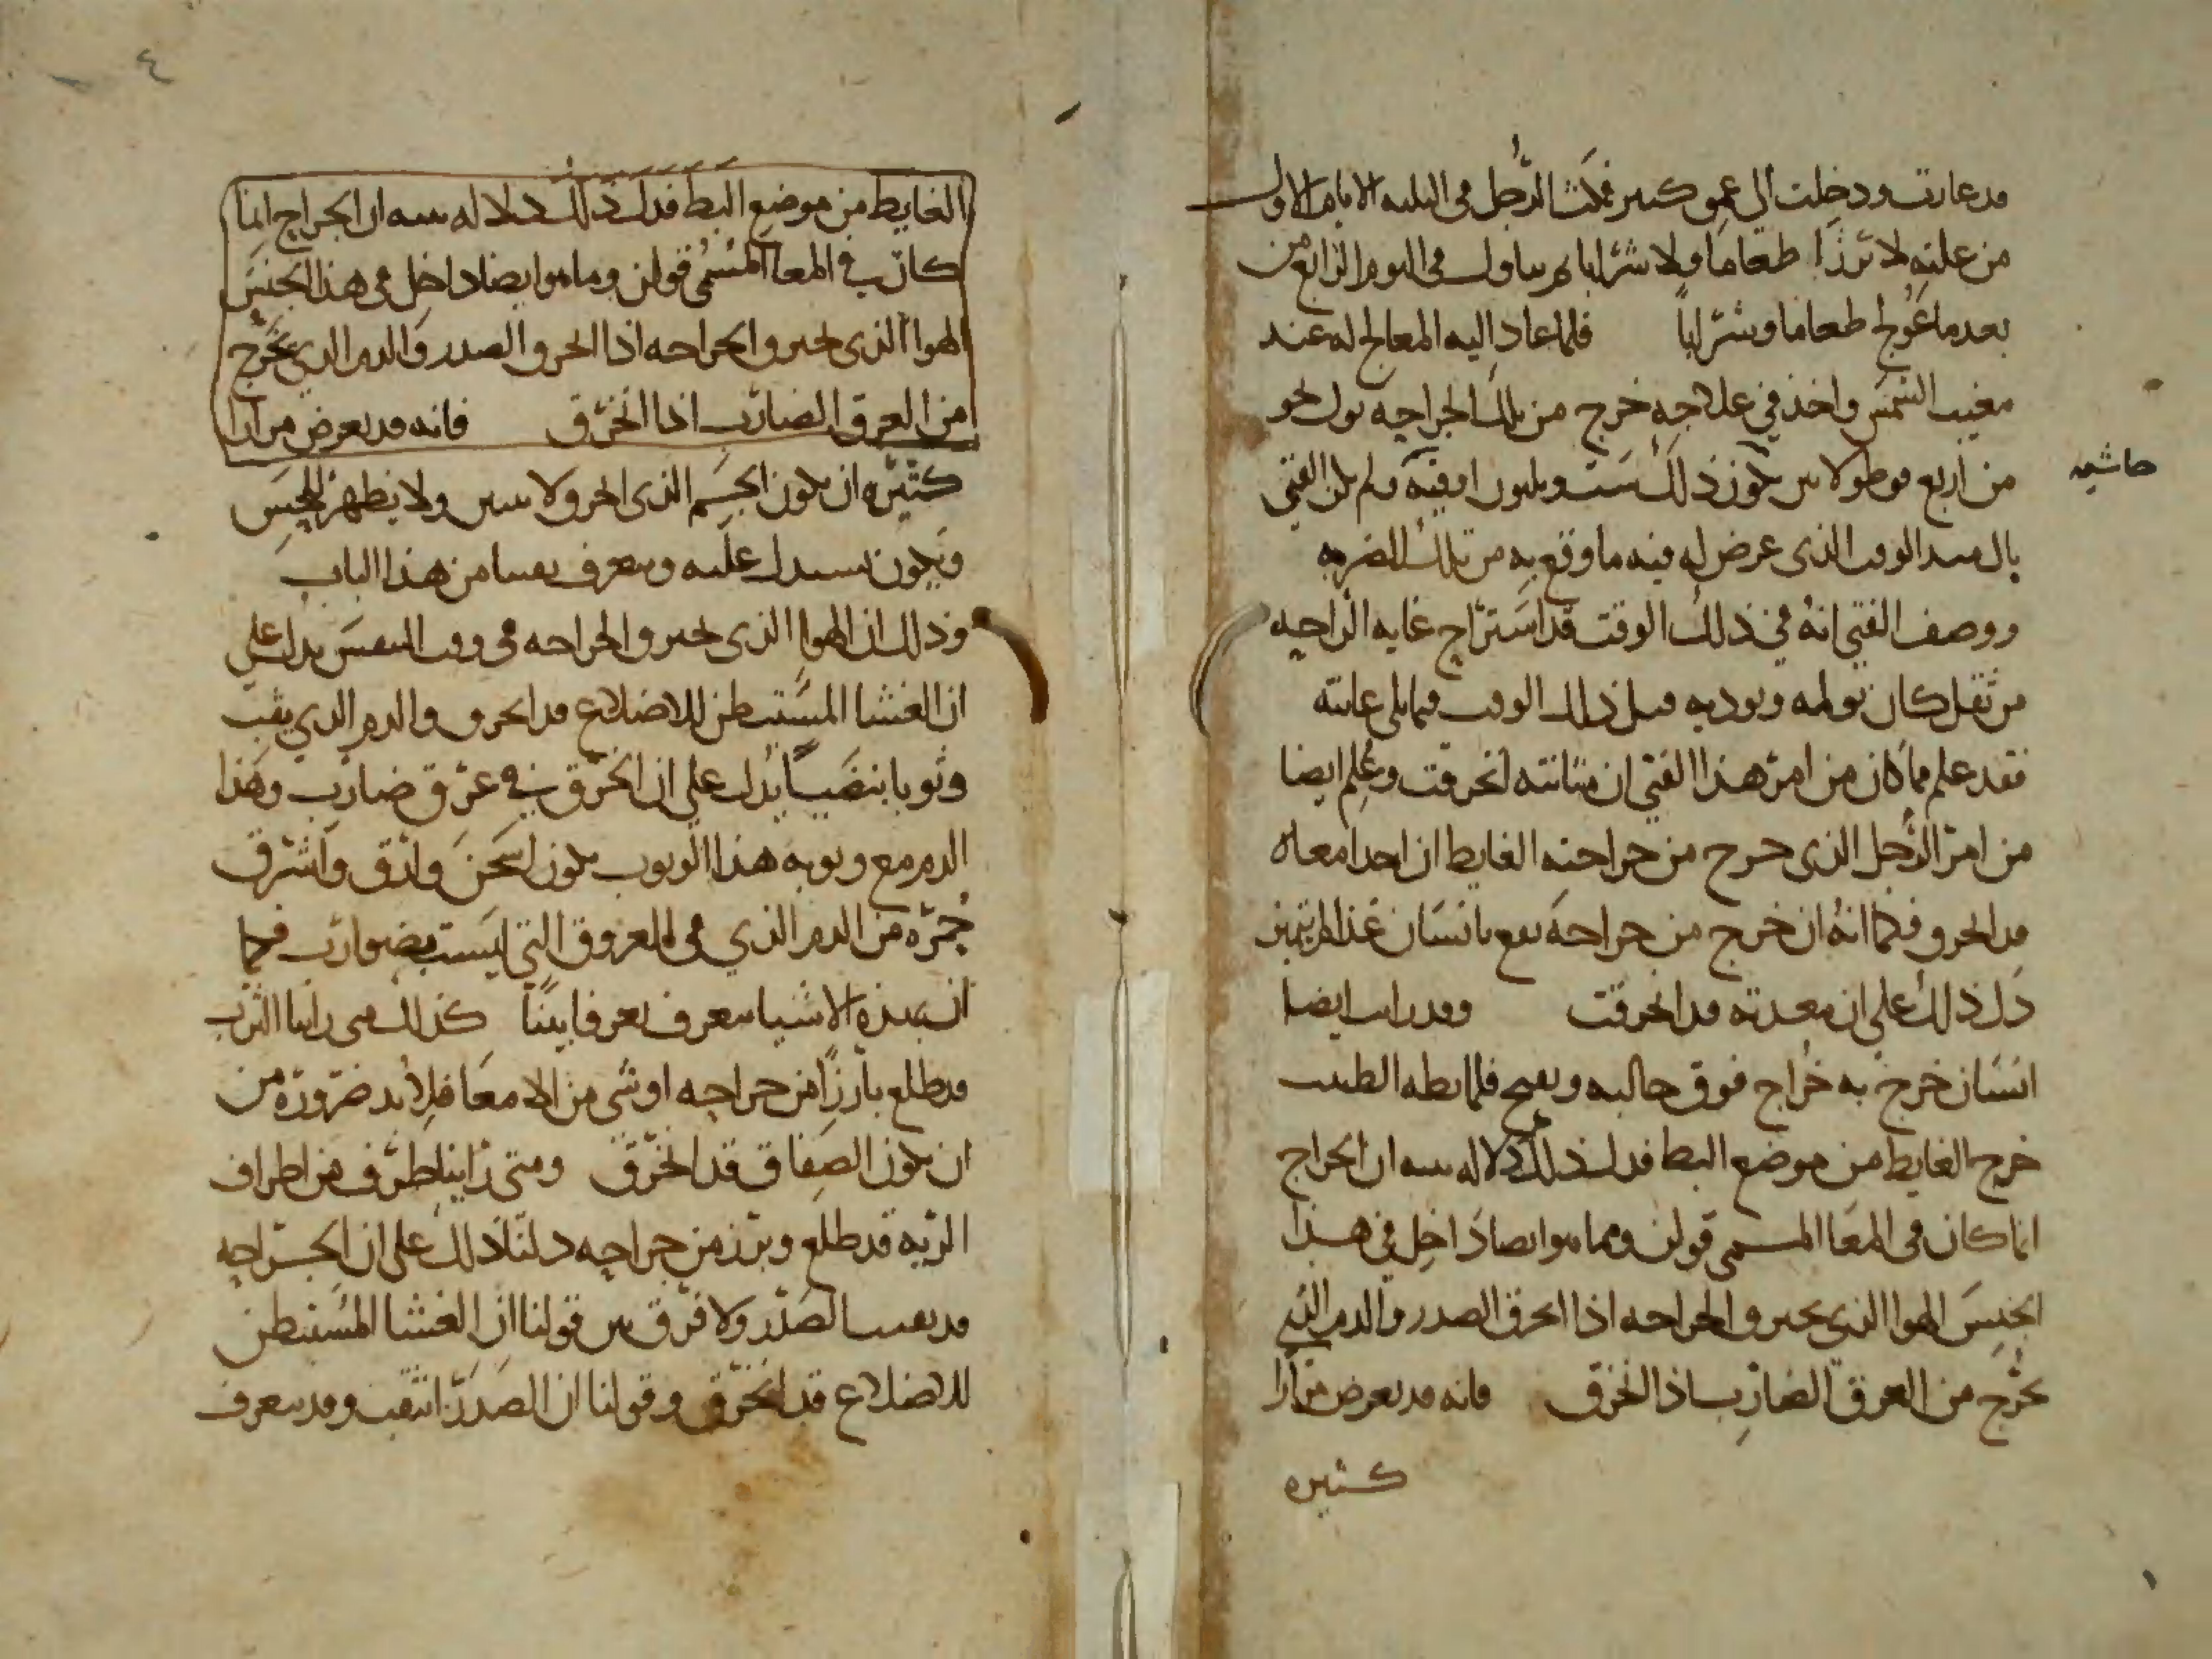 قد غارت ودخلت الى عمق كثير فمكث الرجل فى الثلثه الايام الاول
من علته لا ترزأ طعاما ولا شرابا ثم تناول فى اليوم الرابع من
بعد ما عولج طعاما وشرابا فلما عاد اليه المعالج له عند
مغيب الشمس واخذ فى علاجه خرج من تلك الجراحه بول نحو
من اربع قوطولاس يكون ذلك ست وثلثون اوقيه ولم يكن الفتى
حاشيه
بال منذ الوقت الذى عرض له فيه ما وقع به من تلك الضربه
ووصف الفتى انه فى ذلك الوقت قد استراح غايه الراحه
من ثقل كان يولمه ويوذيه قبل ذلك الوقت فيما يلى عانته
فقد علم مما كان من امر هذا الفتى ان مثانته انخرقت وعلم ايضا
من امر الرجل الذى خرج من جراحته الغايط ان احد امعاه
قد انخرق فكما انه ان خرج من جراحه تقع بانسان غذا لم يتميز
دل ذلك على ان معدته قد انخرقت وقد رايت ايضا
انسان خرج به خراج فوق حالبه وتقيح فلما بطه الطبيب
خرج الغايط من موضع البط فدل ذلك دلاله بينه ان الخراج
انما كان فى المعا المسمى قولن ومما هو ايضا داخل فى هذا
الجنس الهوا الذى يخترق الجراحه اذا انخرق الصدر والدم الذى
يخرج من العرق الضارب اذا انخرق فانه قد يعرض مرارا
كثيره
٤
الغايط من موضع البط فدل ذلك دلاله بينه ان الخراج انما
كان فى المعا المسمى قولن ومما هو ايضا داخل فى هذا الجنس
الهوا الذى يخترق الجراحه اذا انخرق الصدر والدم الذى يخرج
من العرق الضارب اذا انخرق فانه قد يعرض مرارا
كثيره ان يكون الجسم الذى انخرق لا يتبين ولا يظهر للحس
ويكون نستدل عليه ونتعرف تعينا من هذا الباب
وذلك ان الهوا الذى يخترق الجراحه فى وقت التنفس يدل على
ان الغشا المستبطن للاضلاع قد انخرق والدم الذى يثب
وثوبا بنضبيا يدل على ان الخرق فى عرق ضارب وهذا
الدم مع وثوبه هذا الوثوب يكون اسخن وارق واشرق
حمره من الدم الذى فى العروق التى ليست بضوارب فكما
ان بهذه الاشيا نتعرف تعرفا بينا كذلك متى راينا الثرب
قد طلع بارزا من جراحه او شى من الامعا فلا بد ضروره من
ان يكون الصفاق قد انخرق ومتى راينا طرف من اطراف
الريه قد طلع وبرز من جراحه دلنا ذلك على ان الجراحه
قد نقبت الصدر ولا فرق بين قولنا ان الغشا المستبطن
للاضلاع قد انخرق وقولنا ان الصدر انثقب وقد نتعرف